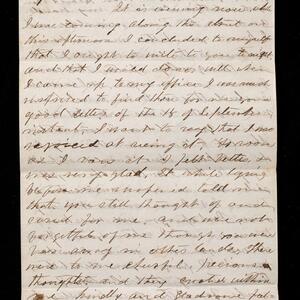 It is evening now as
I was coming along the street on
this afternoon I concluded to myself
that I ought to write to you to night
and that I would do so, with when
I came up to my office I was much
surprised to find there for me your
good letter of the 18 of September
instant. I want to say that I was
rejoiced at seeing it. As soon
as I saw it I felt better, it
was very glad, It while lying
before me unopened told me
that you still thought of and
cared for me, and were not
forgetful of me though you were
away off in other lands. These
were to me cheerful, precious
thoughts and they excited within
me kindly and